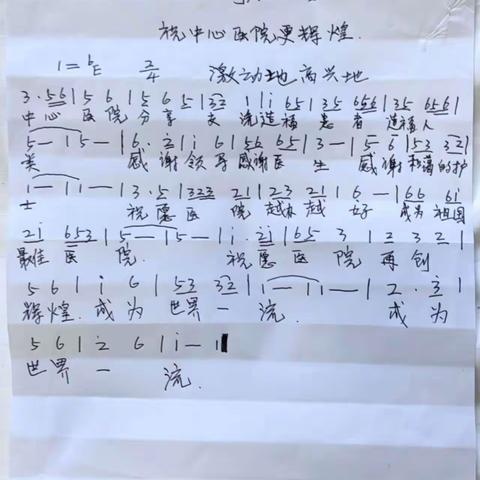 祝中心医院更辉煌.
1=ᵇE 2/4 激动地高兴地
3·56|56|565|332|1i65|35656|35656|
中心医院分享交流造福患者造福人
5—|5—|6.2|i6|5665|3—|56|5332|
美 感谢领导感谢医生 感谢和蔼的护
1—|1—|3·5|3323|21|2321|6—|6661|
士 祝愿医院越办越好 成为祖国
2i653|5—|5—|i.2i|65 3|2 3 2|
最佳医院. 祝愿医院再创
56|i6|5332|1—|1—|2·3|
辉煌.成为世界一流. 成为
56|26|i—i
世界一流.